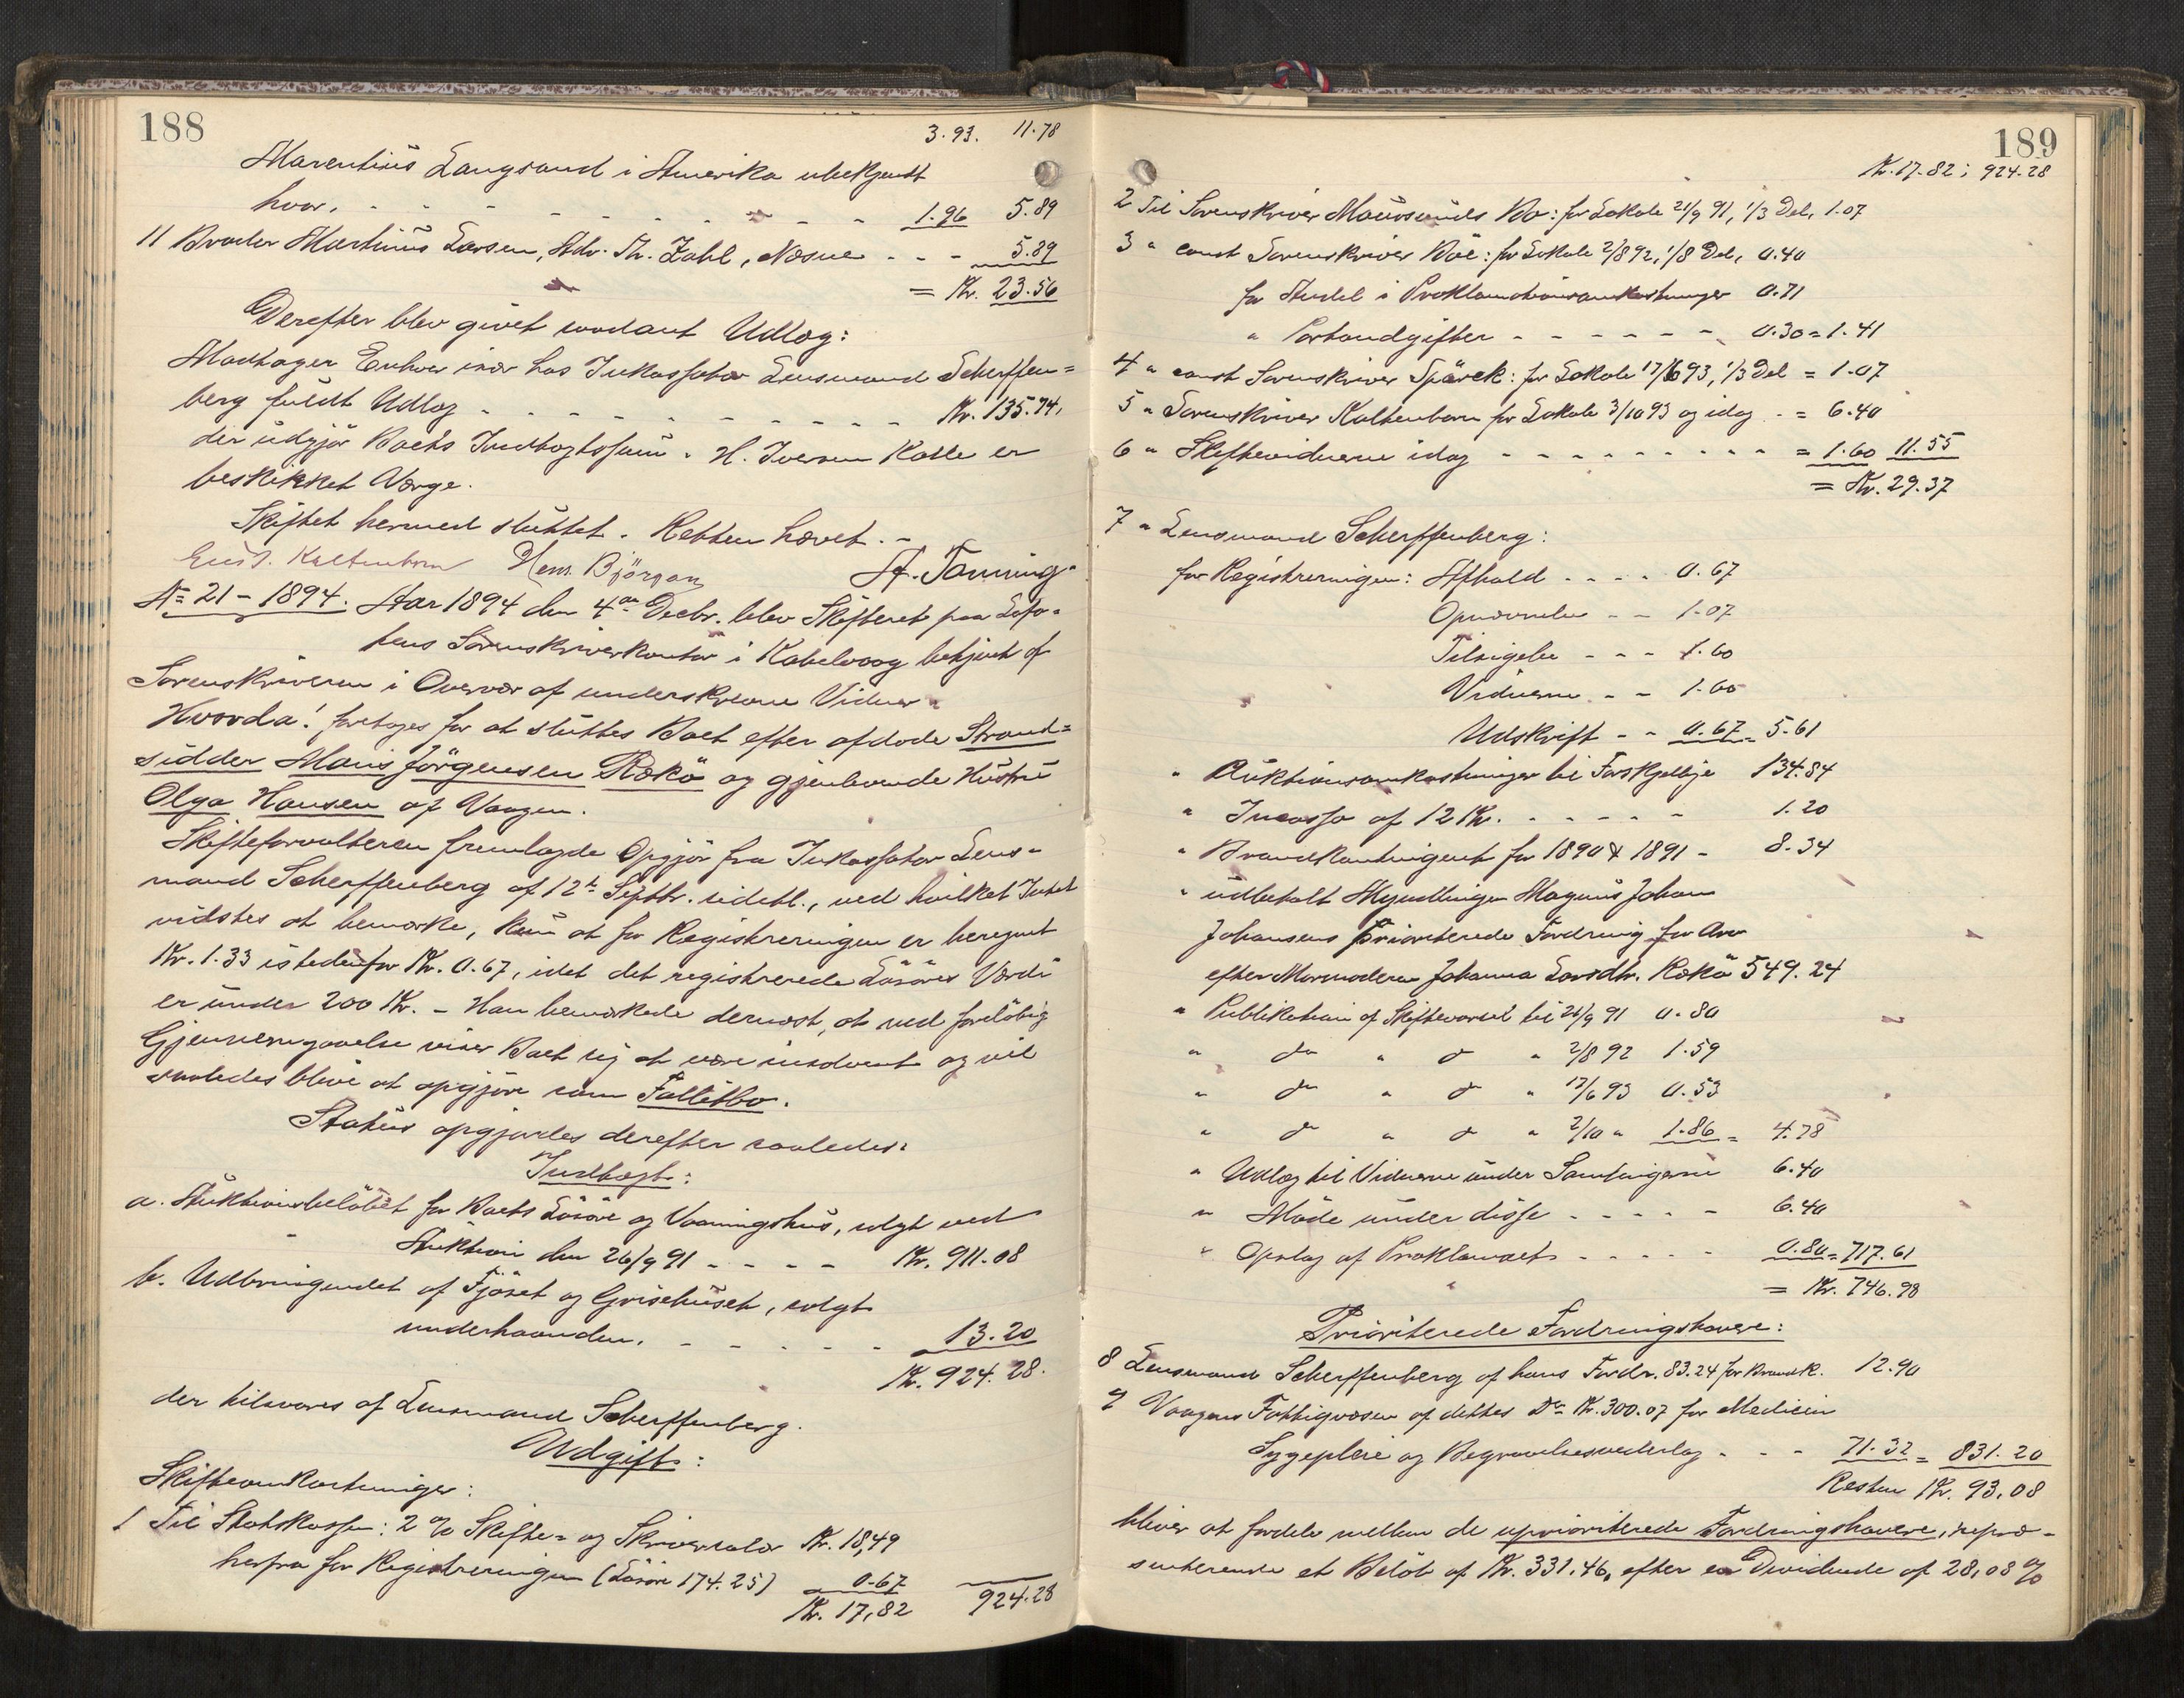 188
3.93. 11.78
Marentius Langsand i Amerika ubekjendt
hvor. - - - - - - - - - - 1.96 5.89
11 Broder Martinus Larsen, Adr. Th. Zahl, Nesne - - - 5.89
= Kr. 23.56
Derefter blev givet saadant Udlæg:
Modtager Enhver især hos Inkassator Lensmand Scherffen=
berg fuldt Udlæg - - - - - - - - - Kr. 135.74,
der udgjør Boets Indtægtssum. H. Iversen Kalle er
beskikket Værge.
Skiftet hermed sluttet. Retten hævet. -
Kaltenborn Hem. Björgan A. Tönning
No 21 - 1894. Aar 1894 den 4de Decbr. blev Skifteret paa Lofo-
tens Sorenskriverkontor i Kabelvaag betjent af
Sorenskriveren i Overvær af underskrevne Vidner.
Hvorda! foretoges for at sluttes Boet efter afdøde Strand=
sidder Hans Jörgensen Rækö og gjenlevende Hustru
Olga Hansen af Vaagen.
Skifteforvalteren fremlagde Opgjör fra Inkassator Lens-
mand Scherffenberg af 12te Septbr. sidstl., ved hvilket Intet
vidstes at bemærke, kun at for Registreringen er beregnet
Kr. 1.33 istedenfor Kr. 0.67, idet det registrerede Lösöres Værdi
er under 200 Kr. - Han bemærkede dernæst, at ved forelöbig
Gjennemgaaelse viser Boet sig at være insolvent og vil
saaledes blive at opgjöre som Fallitbo.
Status opgjordes derefter saaledes:
Indtægt:
a. Auktionsbelöbet for Boets Lösöre og Vaaningshus, solgt ved
Auktion den 26/9 91 - - - - Kr. 911.08
b. Udbringendet af Fjöset og Grisehuset, solgt
underhaanden. - - - - - 13.20
Kr. 924.28.
der tilsvares af Lensmand Scherffenberg.
Udgift:
Skifteomkostninger:
1 Til Statskassen: 2 % Skifte- og Skriversalær Kr. 18,49
herfra for Registreringen (Lösöre 174.25) 0.67
Kr. 17,82 924.28
189
Kr. 17.82; 924.28
2 Til Sorenskriver Maursunds Bo: for Lokale 21/9 91, 1/3 Del, 1.07
3 " const Sorenskriver Böe: for Lokale 2/8 92, 1/8 Del, 0.40
for Andel i Proklamationsomkostninger 0.71
" Portoudgifter - - - - - - 0.30 = 1.41
4 " const Sorenskriver Spärck: for Lokale 17/6 93, 1/3 Del = 1.07
5 " Sorenskriver Kaltenborn for Lokale 3/10 93 og idag - = 6.40
6 " Skiftevidnerne idag - - - - - - - - = 1.60 11.55
= Kr. 29.37
7 " Lensmand Scherffenberg:
for Registreringen: Afhold - - - - 0.67
Opnævnelse - - 1.07
Tilsigelse - - - 1.60
Vidnerne - - 1.60
Udskrift - - 0.67 = 5.61
" Auktionsomkostninger til Forskjellige 134.84
" Incasso af 12 Kr. - - - - - 1.20
" Brandkontingent for 1890 & 1891 - 8.34
" udbetalt Myndlingen Magnus Johan
Johansens prioriterede Fordring for Arv
efter Mormoderen Johanna Larsdtr. Rækö 549.24
" Publikation af Skiftevarsel til 21/9 91 0.80
" do " do " 2/8 92 1.59
" do " do " 17/6 93 0.53
" do " do " 2/10 " 1.86 = 4.78
" Udlæg til Vidnerne under Samlingerne 6.40
" Möde under disse - - - - - 6.40
" Opslag af Proklamaet - - - - - 0.80 = 717.61
= Kr. 746.98
Prioriterede Fordringshavere:
8 Lensmand Scherffenberg af hans Fordr. 83.24 for Brandk. 12.90
9 Vaagens Fattigvæsen af dettes do Kr. 300.07 for Medicin
Sygepleie og Begravelsesvederlag - - - 71.32 = 831.20
Resten Kr. 93.08
bliver at fordele mellem de uprioriterede Fordringshavere, repræ-
senterende et Belöb af Kr. 331.46, efter en Dividende af 28,08 %